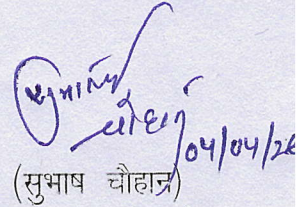 सुभाष
चौहान
04/04/26
(सुभाष चौहान)